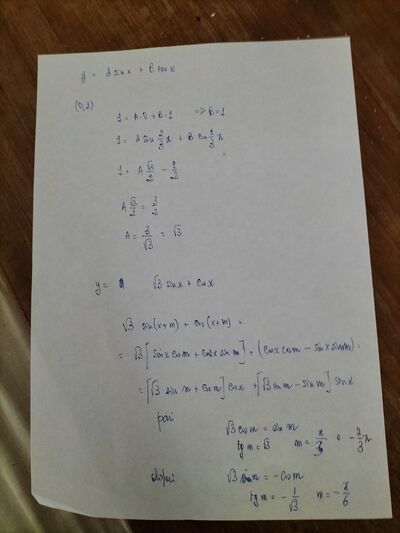 y = A sin x + B cos x
(0,1)
1 = A·0 + B·1 => B = 1
1 = A sin 2/3 π + B cos 2/3 π
1 = A √3/2 - 1/2
A √3/2 = 3/2
A = 3/√3 = √3
y = √3 sin x + cos x
√3 sin(x+m) + cos(x+m) =
= √3 [sin x cos m + cos x sin m] + (cos x cos m - sin x sin m) =
= [√3 sin m + cos m] cos x + [√3 cos m - sin m] sin x
pari
√3 cos m = sin m
tg m = √3 m = π/3 o -2/3 π
dispari √3 sin m = -cos m
tg m = -1/√3 m = -π/6